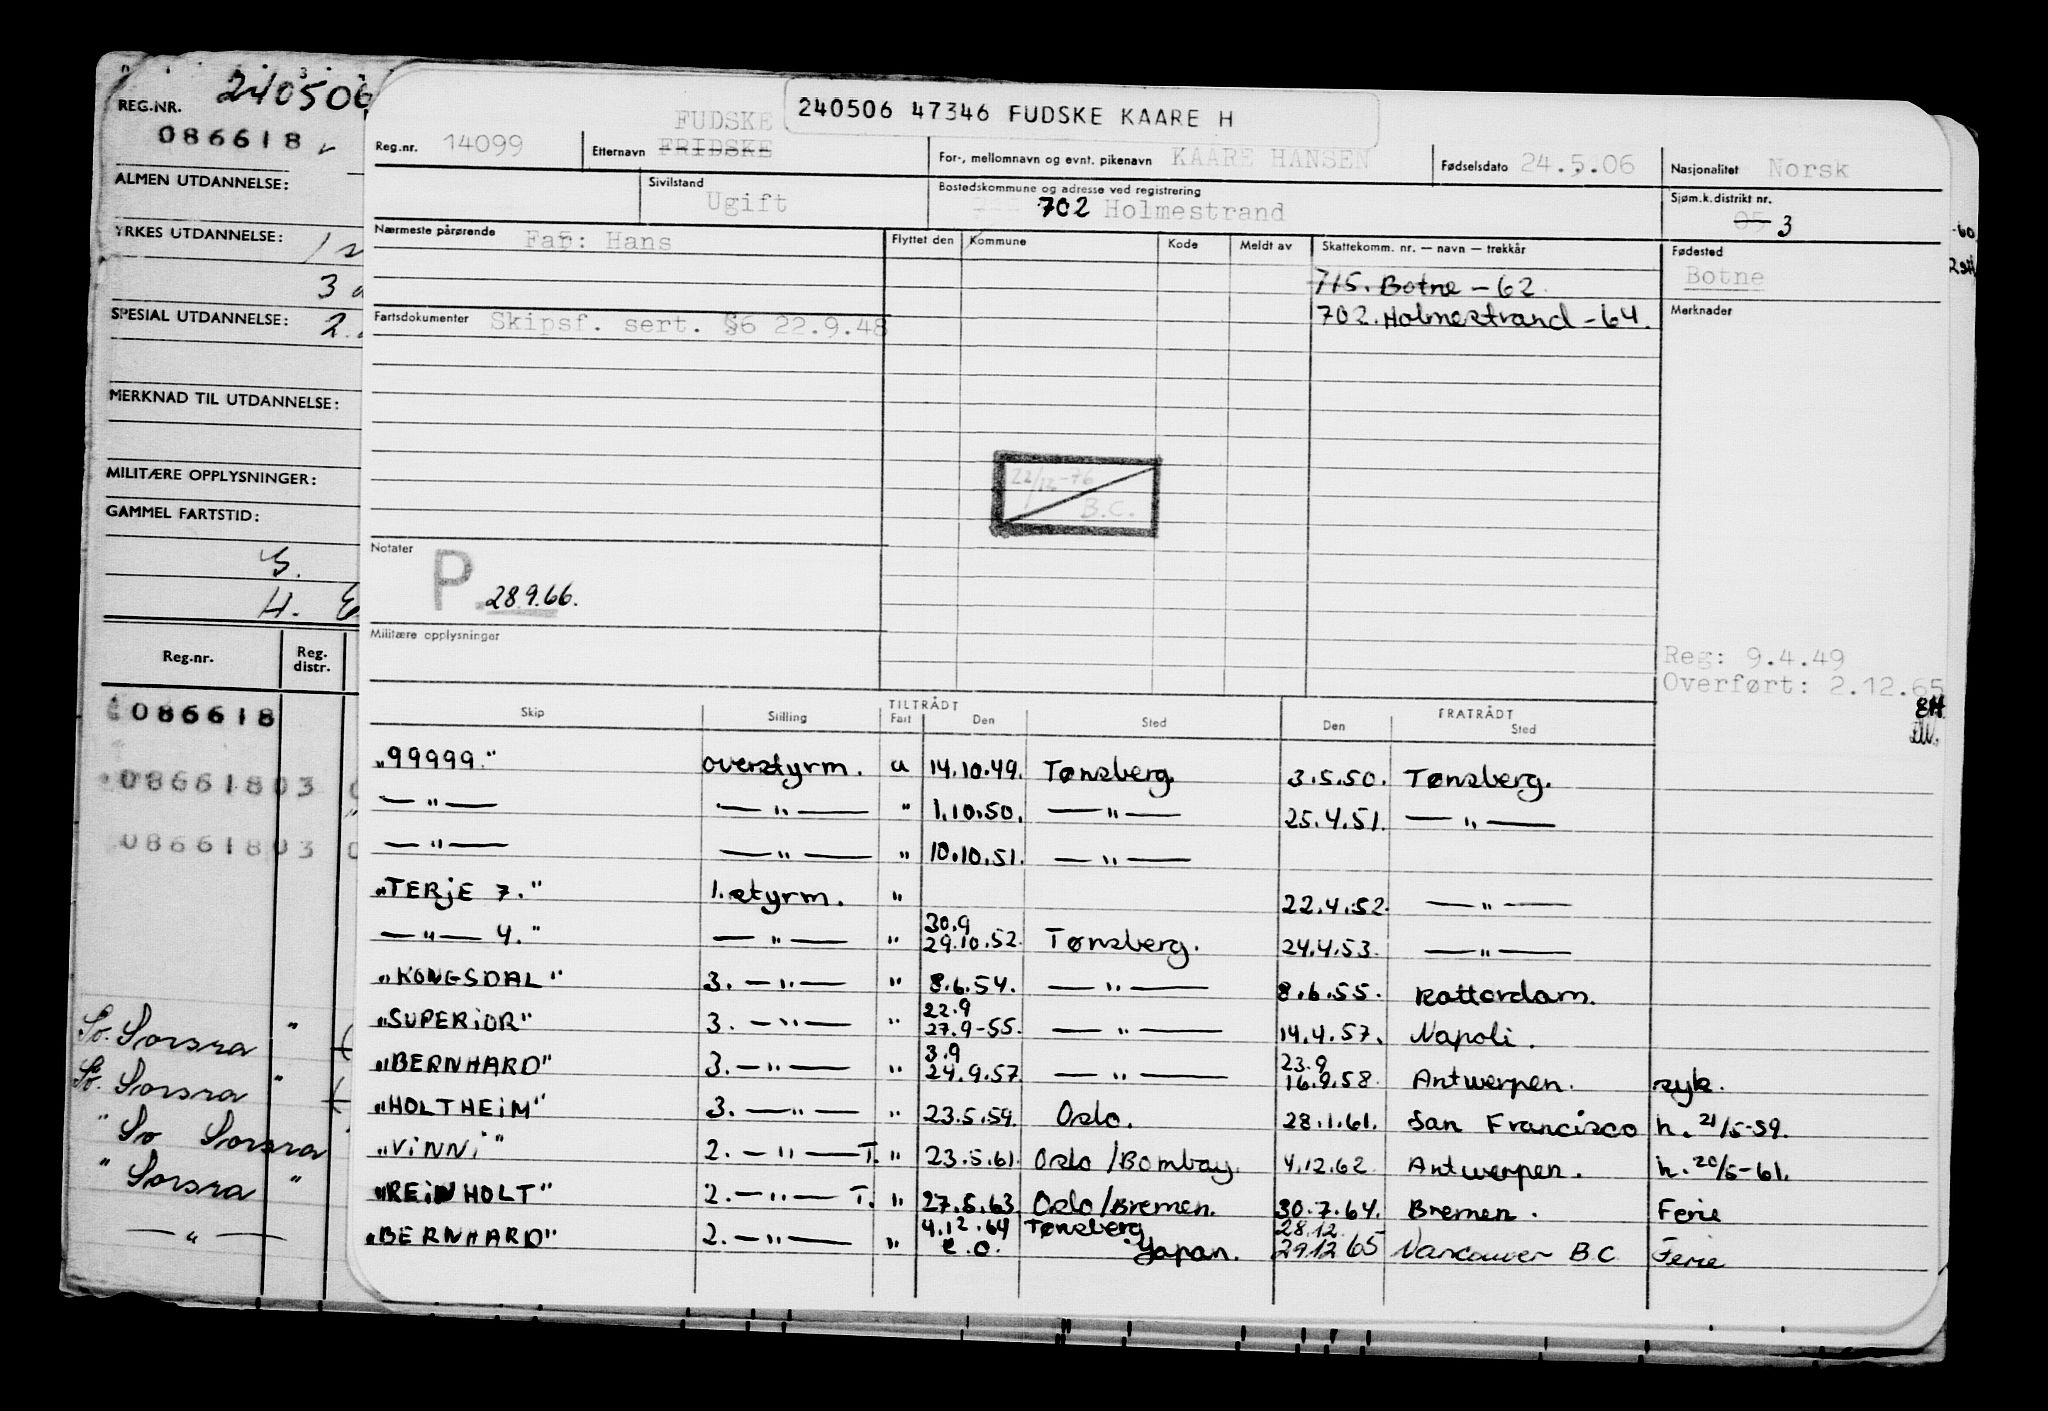 REG.NR. 240506
086618
ALMEN UTDANNELSE:
YRKES UTDANNELSE:
3
SPESIAL UTDANNELSE: 2.
MERKNAD TIL UTDANNELSE:
MILITÆRE OPPLYSNINGER:
GAMMEL FARTSTID:
H. E
Reg.nr. Reg. distr.
086618
08661803
08661803
So. Sorsra "
So. Sorsra "
" So Sorsra
" Sorsra "
— " —
240506 47346 FUDSKE KAARE H
FUDSKE
Reg.nr. 14099 Etternavn FRIDSKE For-, mellomnavn og evnt. pikenavn KAARE HANSEN Fødselsdato 24.5.06 Nasjonalitet Norsk
Sivilstand Ugift Bostedskommune og adresse ved registrering 702 Holmestrand Sjøm.k.distrikt nr. 05 3
Nærmeste pårørende Far: Hans Flyttet den Kommune Kode Meldt av Skattekomm. nr. — navn — trekkår Fødested
715. Botne - 62. Botne
Fartsdokumenter Skipsf. sert. §6 22.9.48 702. Holmestrand - 64. Merknader
22/12-76
B.C.
Notater P. 28.9.66.
Militære opplysninger
Reg: 9.4.49
Overført: 2.12.65
EH
TILTRÅDT FRATRÅDT
Skip Stilling Fart Den Sted Den Sted
"99999." overstyrm. u 14.10.49. Tønsberg. 3.5.50. Tønsberg.
— " — — " — " 1.10.50. — " — 25.4.51. — " —
— " — — " — " 10.10.51. — " —
"TERJE 7." 1. styrm. " 22.4.52. — " —
30.9
— " — 4." — " — " 29.10.52. Tønsberg. 24.4.53. — " —
"KONGSDAL" 3. — " — " 8.6.54. — " — 8.6.55. Rotterdam.
22.9
"SUPERIOR" 3. — " — " 27.9-55. — " — 14.4.57. Napoli.
3.9 23.9
"BERNHARD" 3. — " — " 24.9.57. — " — 16.9.58. Antwerpen. syk.
"HOLTHEIM" 3. — " — " 23.5.59. Oslo. 28.1.61. San Francisco h. 21/5-59.
"VINNI" 2. — " — T. " 23.5.61. Oslo/Bombay. 4.12.62. Antwerpen. h. 20/5-61.
"REINHOLT" 2. — " — T. " 27.5.63. Oslo/Bremen. 30.7.64. Bremen. Ferie
4.12.64 Tønsberg 28.12
"BERNHARD" 2. — " — " e.o. Japan. 29.12.65 Vancouver B.C. Ferie